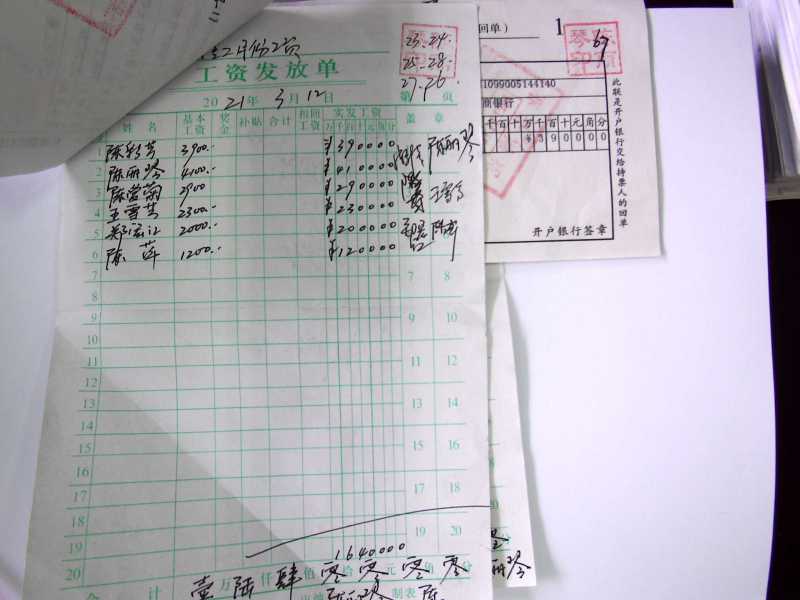 2月份工资
23.24.
工资发放单
25-28-
27.26
2021年3月12日 第 页
姓名 基本工资 奖金 补贴 合计 扣回工资 实发工资 盖章
万千百十元角分
1 陈彩芳 3900.- ¥390000
2 陈丽琴 4100.- ¥410000 陈丽琴
3 陈莹菊 2900 ¥290000
4 王雪芳 2300.- ¥230000 王雪芳
5 2000.- ¥200000
6 陈萍 1200.- ¥120000 陈萍
7 7 8
8
9 9 10
10
11 11 12
12
13 13 14
14
15 15 16
16
17 17 18
18
19 19 20
20 1640000
合计 壹万陆仟肆佰零拾零元零角零分
制表 陈
回单） 1
67
1099005144140
商银行
千百十万千百十元角分
¥390000
开户银行签章
此联是开户银行交给持票人的回单
20